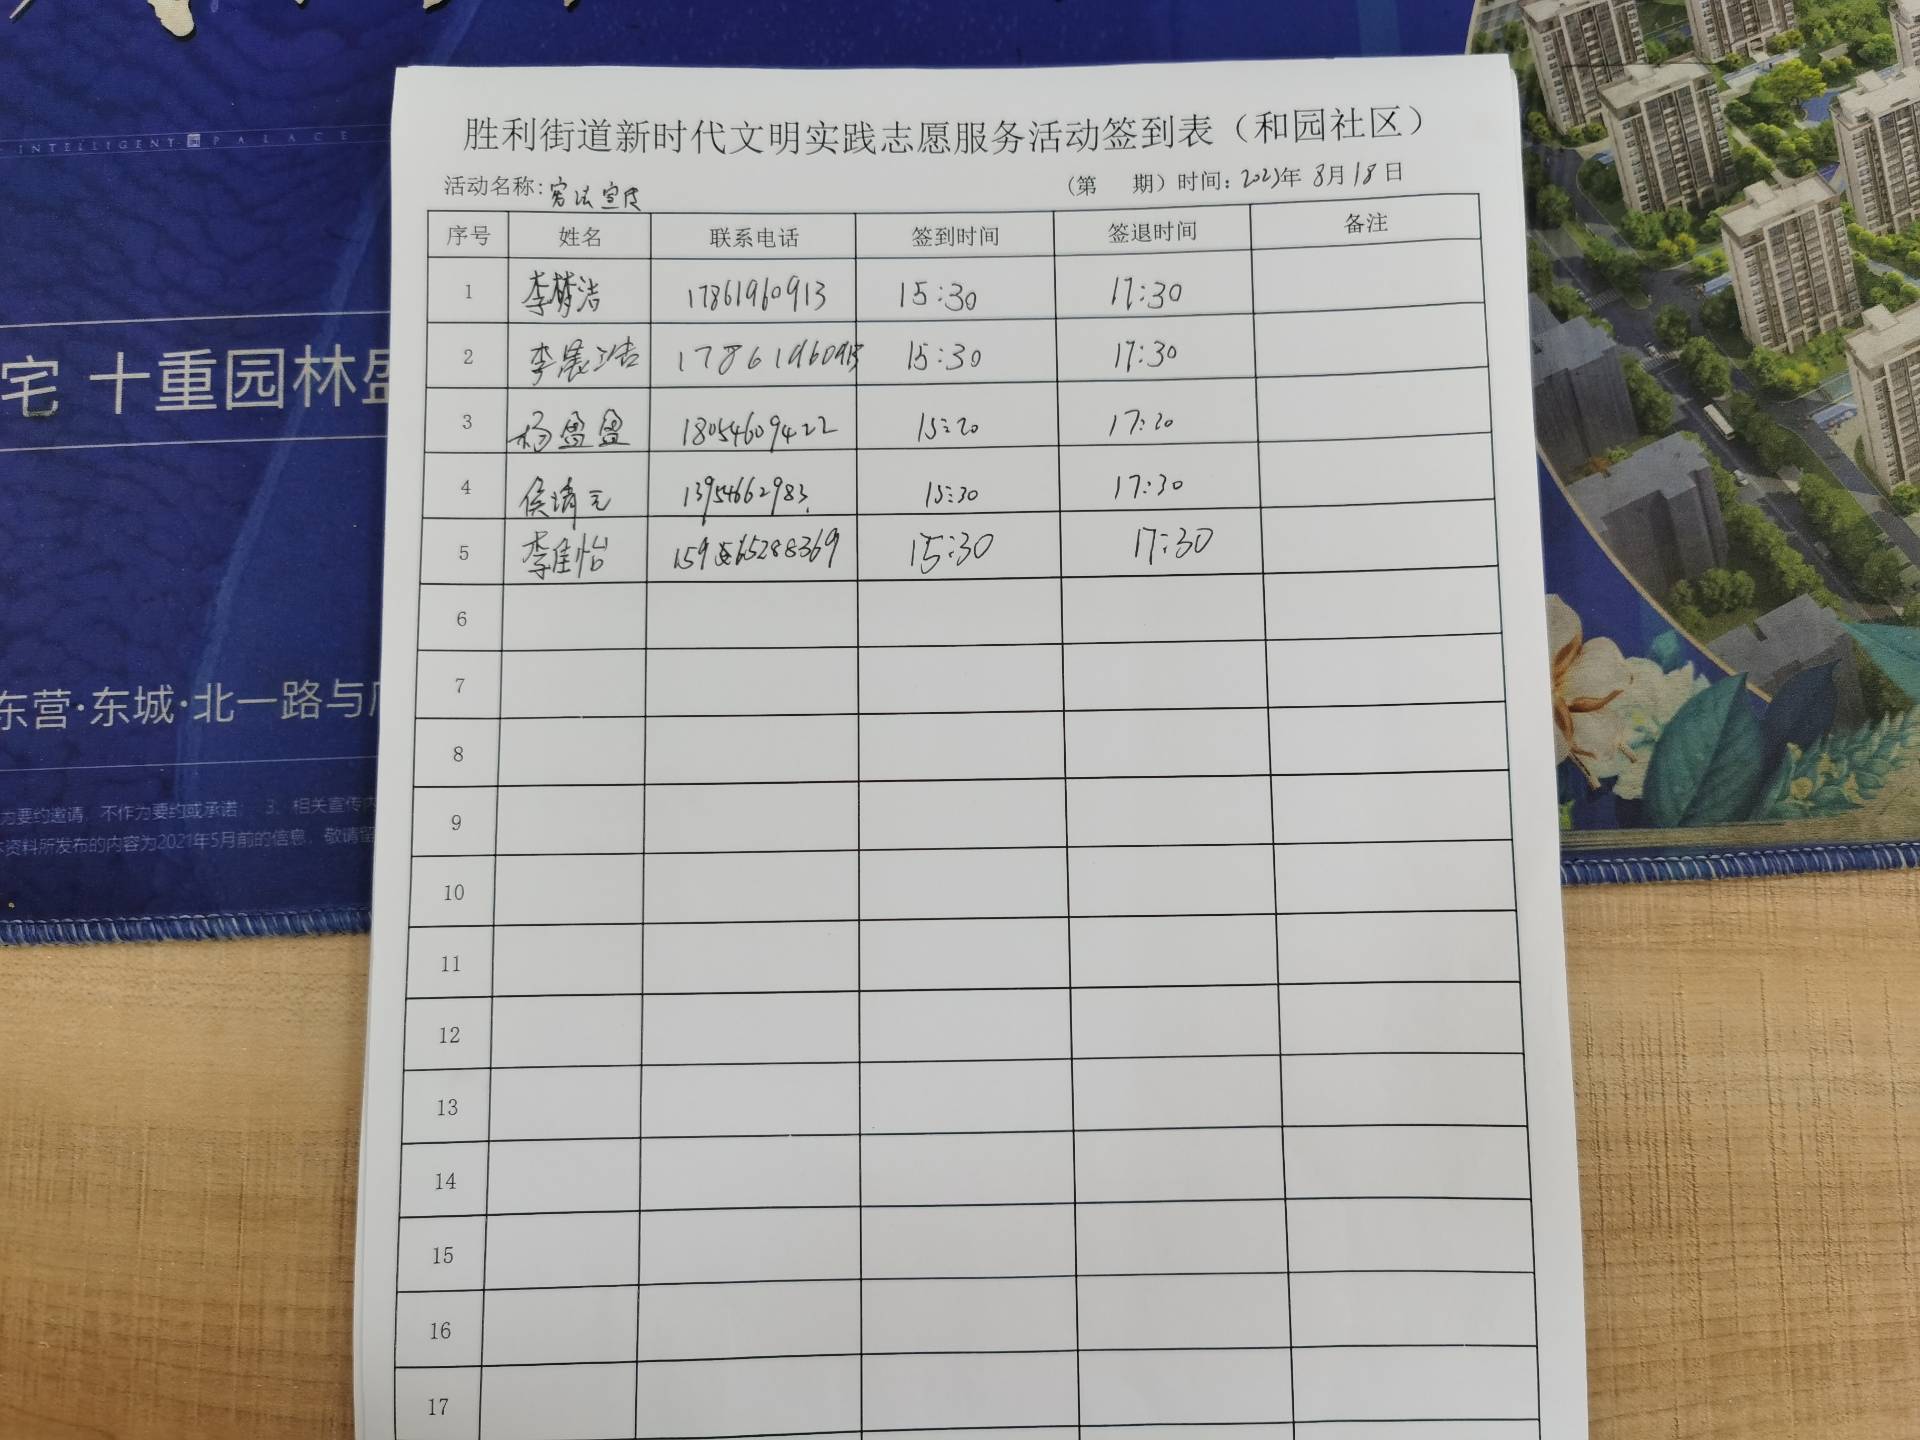 INTELLIGENT PALACE
胜利街道新时代文明实践志愿服务活动签到表（和园社区）
活动名称：宪法宣传 （第 期）时间：2023年 8月18日
序号 姓名 联系电话 签到时间 签退时间 备注
1 李梦洁 17861960913 15:30 17:30
2 李晨洁 17861960913 15:30 17:30
3 杨盈盈 18054609422 15:20 17:20
4 侯靖元 13954662983 15:30 17:30
5 李佳怡 15:30 17:30
6
7
8
9
10
11
12
13
14
15
16
17
宅 十重园林盛
东营·东城·北一路与
为要约邀请，不作为要约或承诺； 3、相关宣传内
本资料所发布的内容为2021年5月前的信息，敬请留